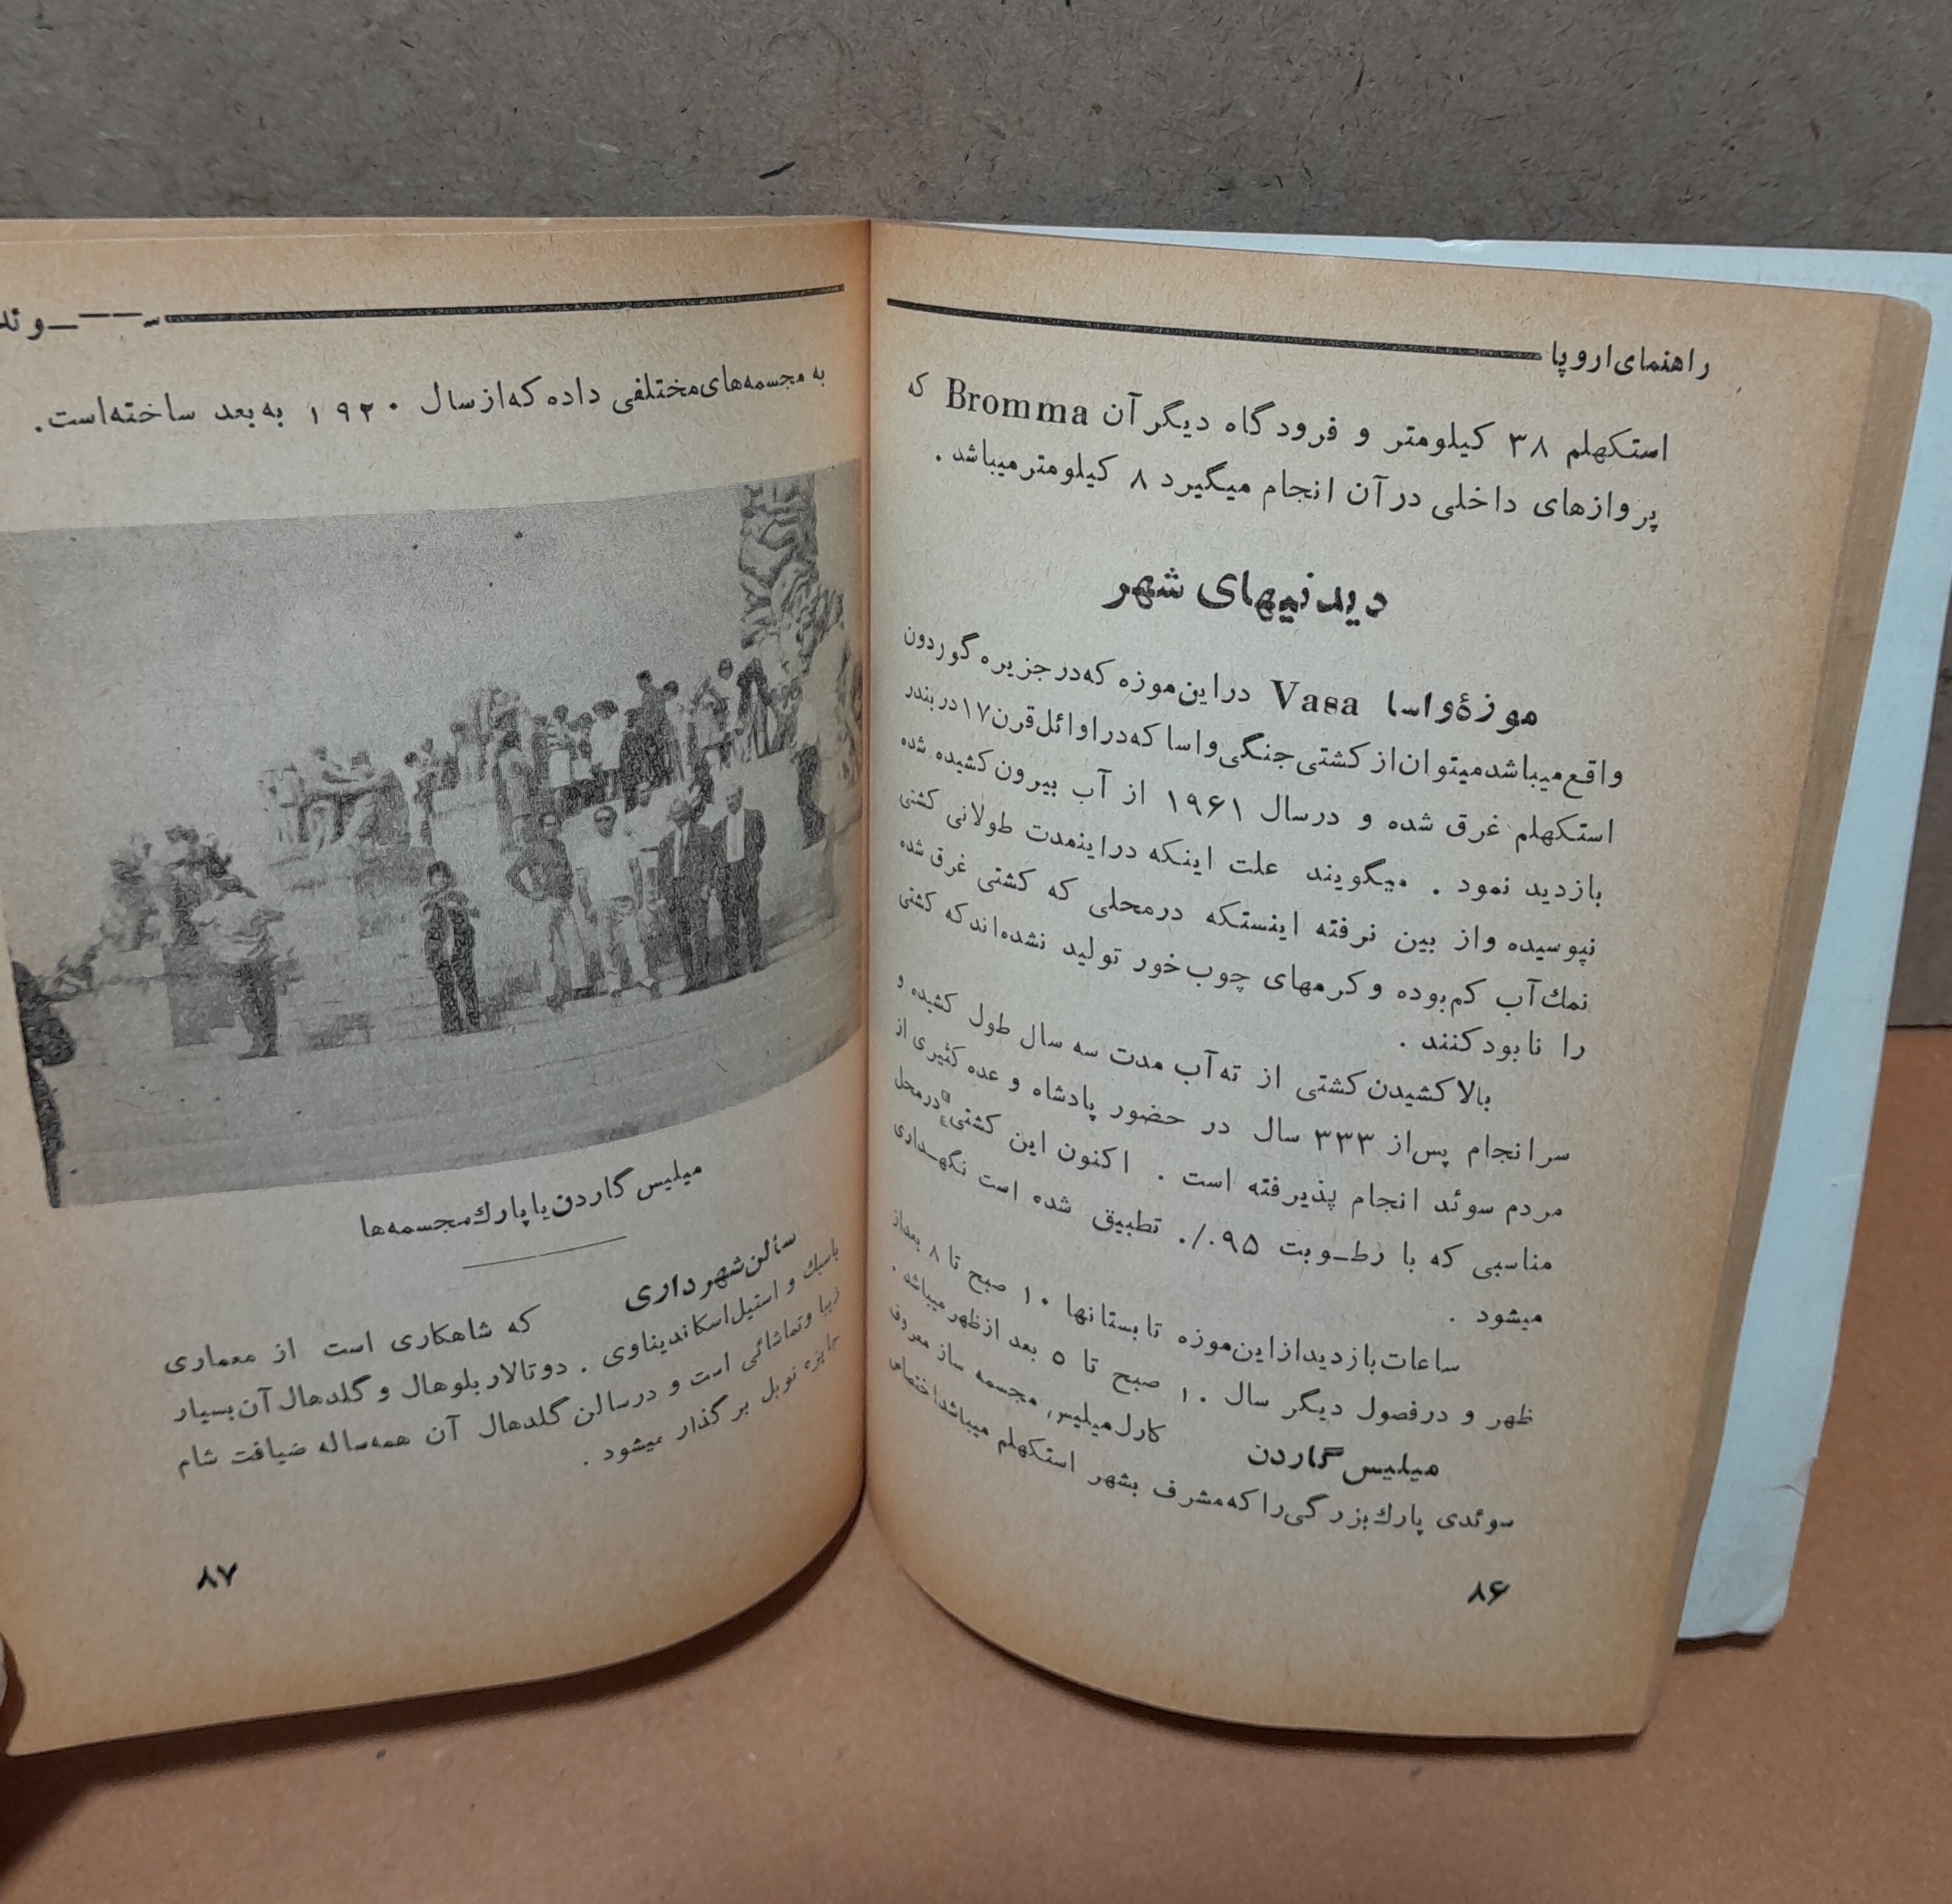 راهنمای اروپا
استکهلم ۳۸ کیلومتر و فرودگاه دیگر آن Bromma که
پروازهای داخلی در آن انجام میگیرد ۸ کیلومتر میباشد .
دیدنیهای شهر
موزهٔ واسا Vasa در این موزه که در جزیره گوردون
واقع میباشد میتوان از کشتی جنگی واسا که در اوائل قرن ۱۷ در بندر
استکهلم غرق شده و در سال ۱۹۶۱ از آب بیرون کشیده شده
بازدید نمود . میگویند علت اینکه در اینمدت طولانی کشتی
نپوسیده و از بین نرفته اینستکه در محلی که کشتی غرق شده
نمك آب کم بوده و کرمهای چوب خور تولید نشده اند که کشتی
را نابود کنند .
بالا کشیدن کشتی از ته آب مدت سه سال طول کشیده و
سرانجام پس از ۳۳۳ سال در حضور پادشاه و عده کثیری از
مردم سوئد انجام پذیرفته است . اکنون این کشتی در محل
مناسبی که با رطوبت ۹۵٪ تطبیق شده است نگهداری
میشود .
ساعات بازدید از این موزه تابستانها ۱۰ صبح تا ۸ بعداز
ظهر و در فصول دیگر سال ۱۰ صبح تا ۵ بعد از ظهر میباشد .
میلیس گاردن کارل میلیس، مجسمه ساز معروف
سوئدی پارك بزرگی را که مشرف بشهر استکهلم میباشد اختصاص
۸۶
به مجسمه های مختلفی داده که از سال ۱۹۲۰ به بعد ساخته است.
میلیس گاردن یا پارك مجسمه ها
سالن شهرداری که شاهکاری است از معماری
باسبك و استیل اسکاندیناوی . دو تالار بلوهال و گلدهال آن بسیار
زیبا و تماشائی است و در سالن گلدهال آن همه ساله ضیافت شام
جایزه نوبل برگذار میشود .
۸۷